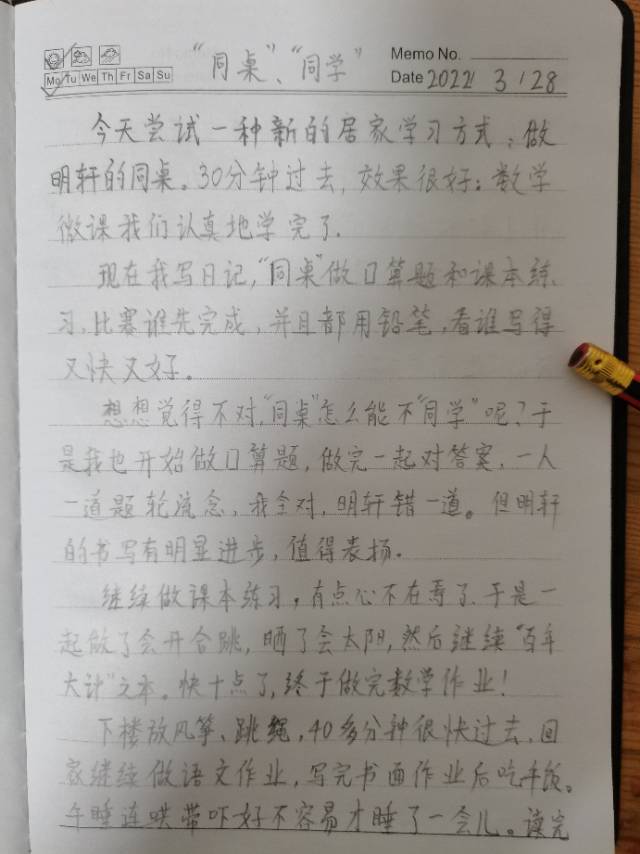 "同桌"、"同学"
Memo No.
Mo Tu We Th Fr Sa Su
Date 2022 / 3 / 28
今天尝试一种新的居家学习方式：做
明轩的同桌。30分钟过去，效果很好：数学
微课我们认真地学完了.
现在我写日记，"同桌"做口算题和课本练
习，比赛谁先完成，并且都用铅笔，看谁写得
又快又好。
想想觉得不对，"同桌"怎么能不"同学"呢？于
是我也开始做口算题，做完一起对答案，一人
一道题轮流念，我全对，明轩错一道。但明轩
的书写有明显进步，值得表扬.
继续做课本练习，有点心不在焉了、于是一
起做了会开合跳，晒了会太阳，然后继续"百年
大计"之本。快十点了，终于做完数学作业！
下楼放风筝、跳绳，40多分钟很快过去，回
家继续做语文作业，写完书面作业后吃午饭。
午睡连哄带吓好不容易才睡了一会儿。读完